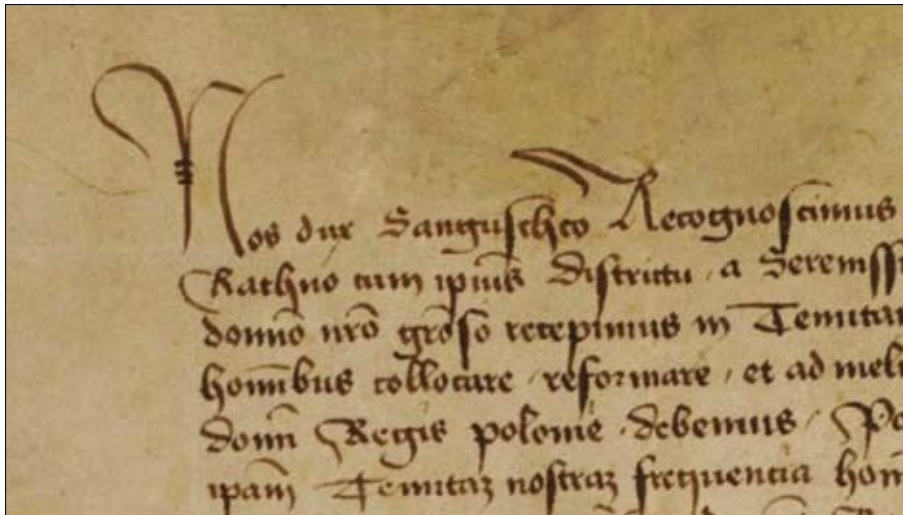 Nos dux Sanguschco Recognoscimus
Rathno cum ipius districtu a Serenissi
domio nro groso recepimus in Tenutam
homibus collocare reformare et ad meli
domi Regis polonie debemus Po
ipam Tenutam nostram frequencia hom